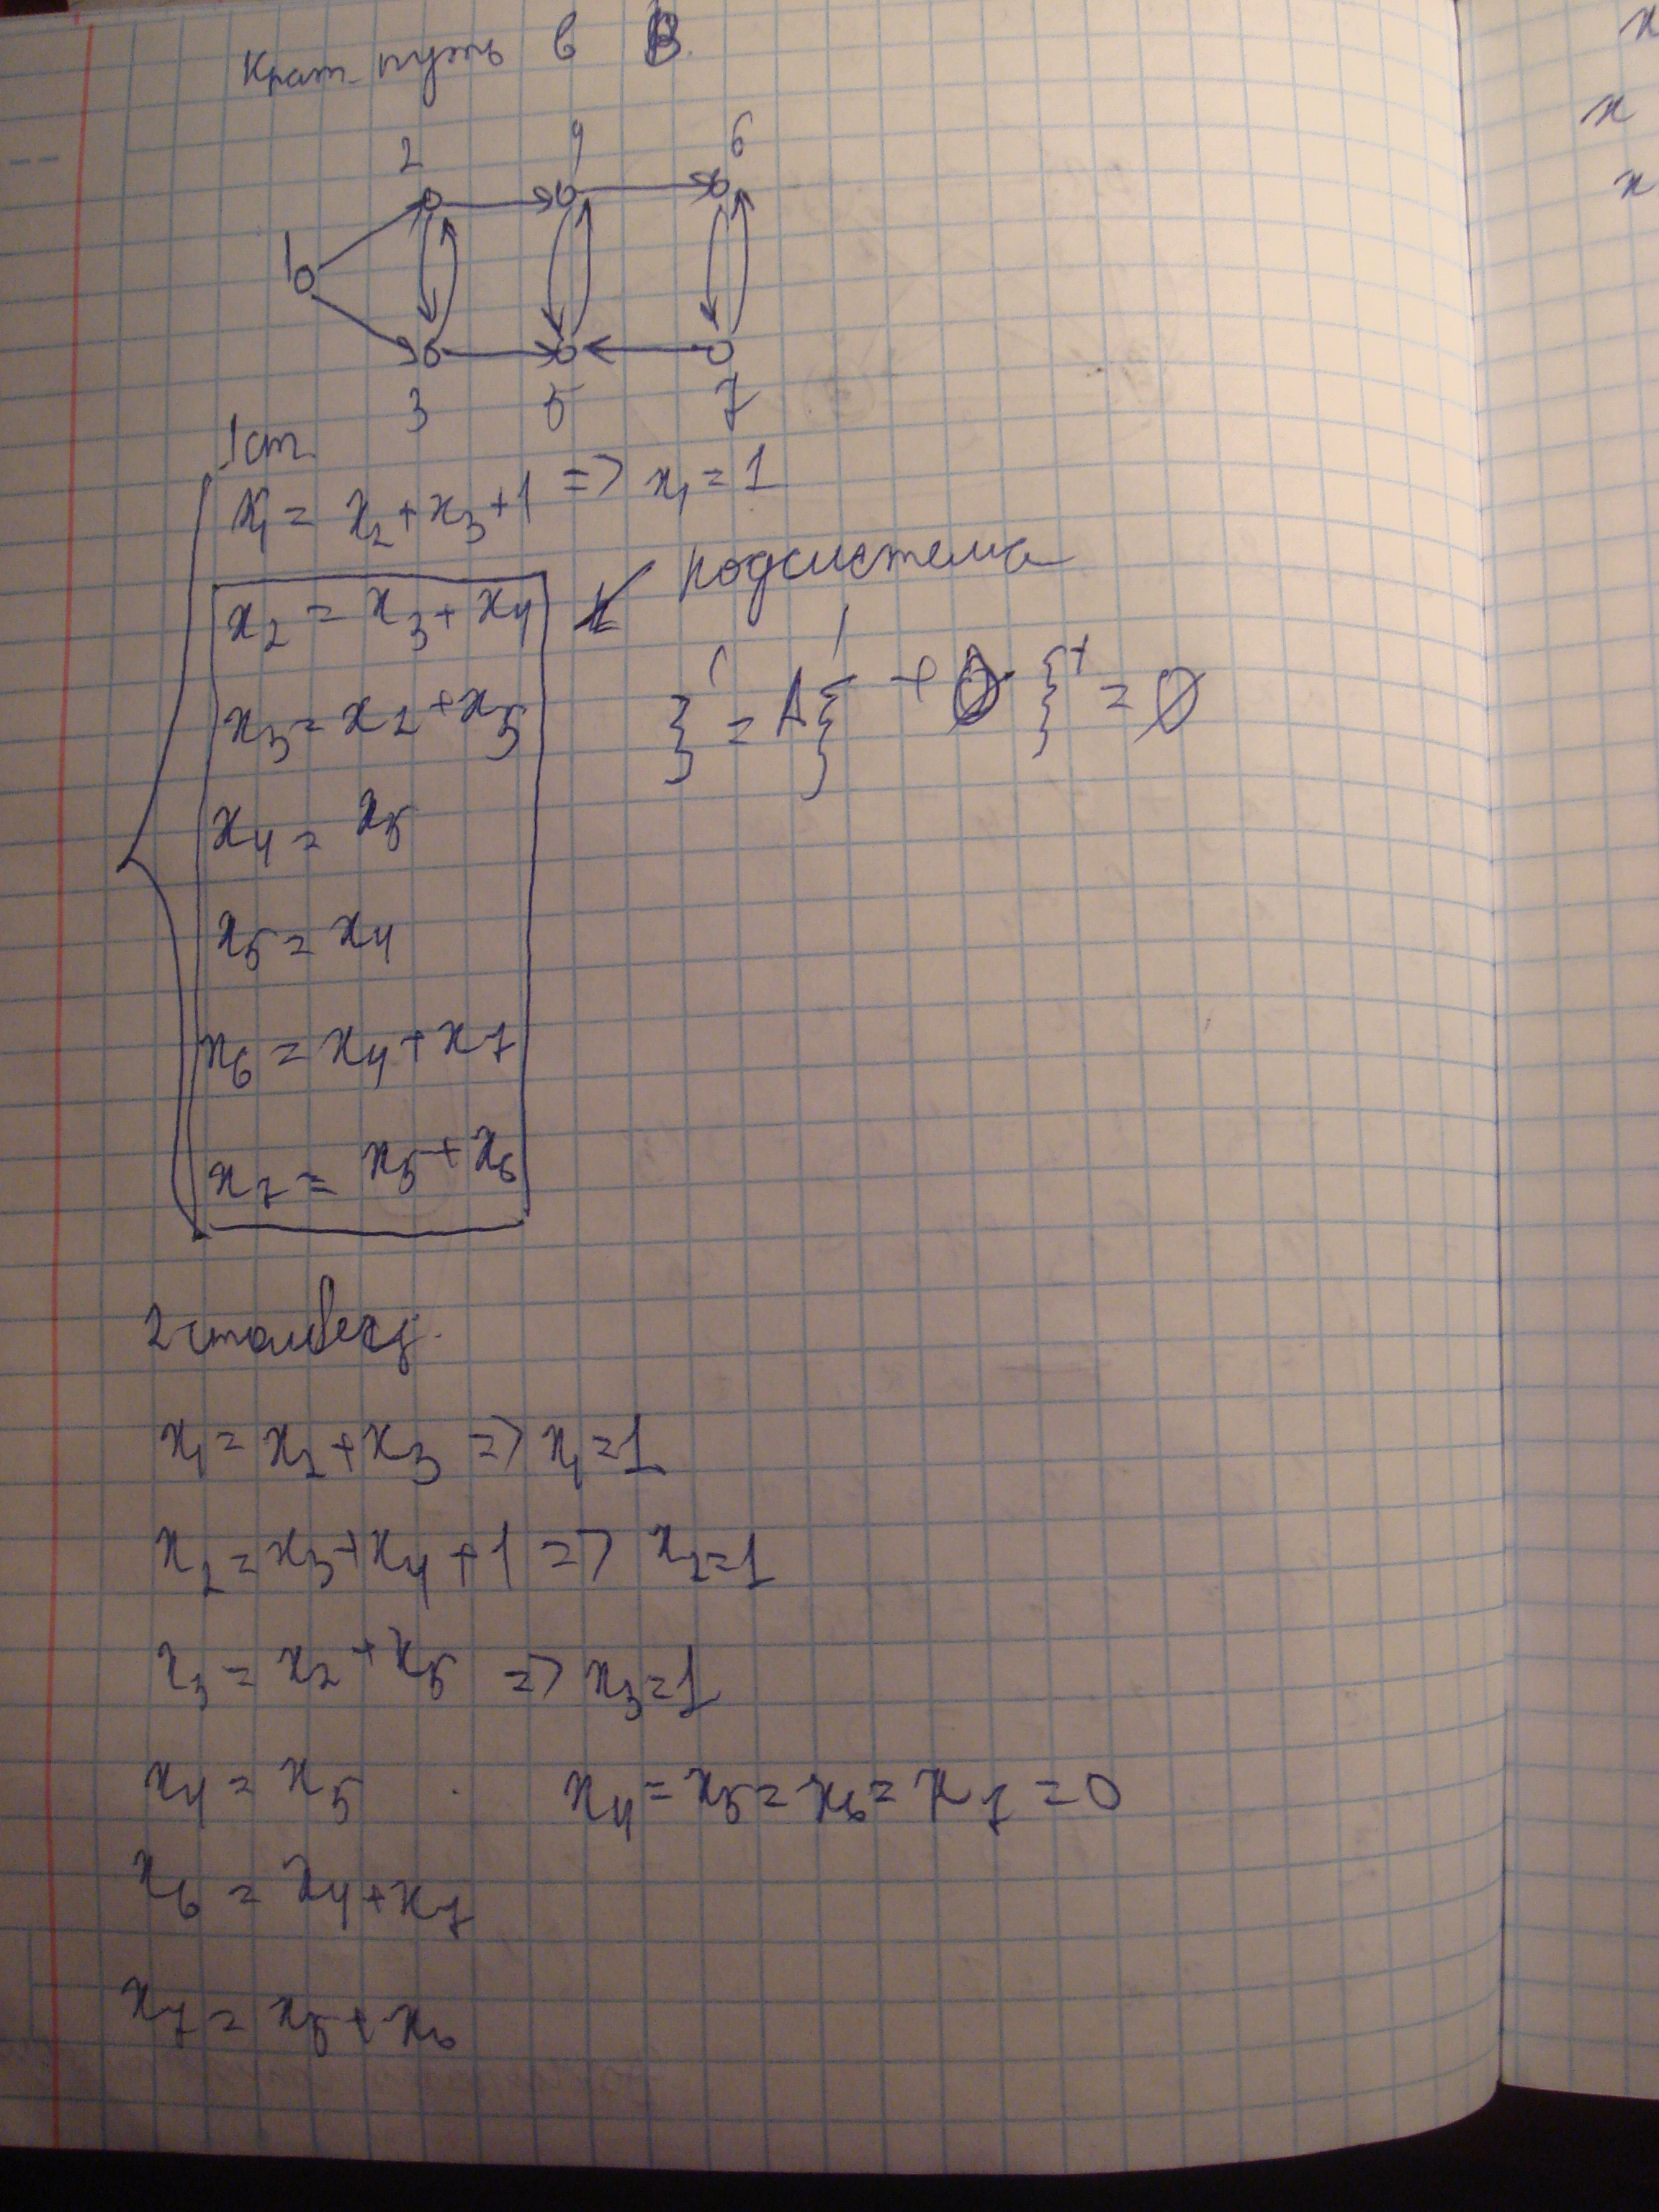 Крат. путь в B.
2 4 6
1
3 5 7
1 ст.
x₁ = x₂ + x₃ + 1 => x₁ = 1
x₂ = x₃ + x₄
подсистема
x₃ = x₂ + x₅
ξ' = Aξ' + 0 ξ⁺ = 0
x₄ = x₅
x₅ = x₄
x₆ = x₄ + x₇
x₇ = x₅ + x₆
2 столбец.
x₁ = x₂ + x₃ => x₁ = 1
x₂ = x₃ + x₄ + 1 => x₂ = 1
x₃ = x₂ + x₅ => x₃ = 1
x₄ = x₅ x₄ = x₅ = x₆ = x₇ = 0
x₆ = x₄ + x₇
x₇ = x₅ + x₆
x
x
x